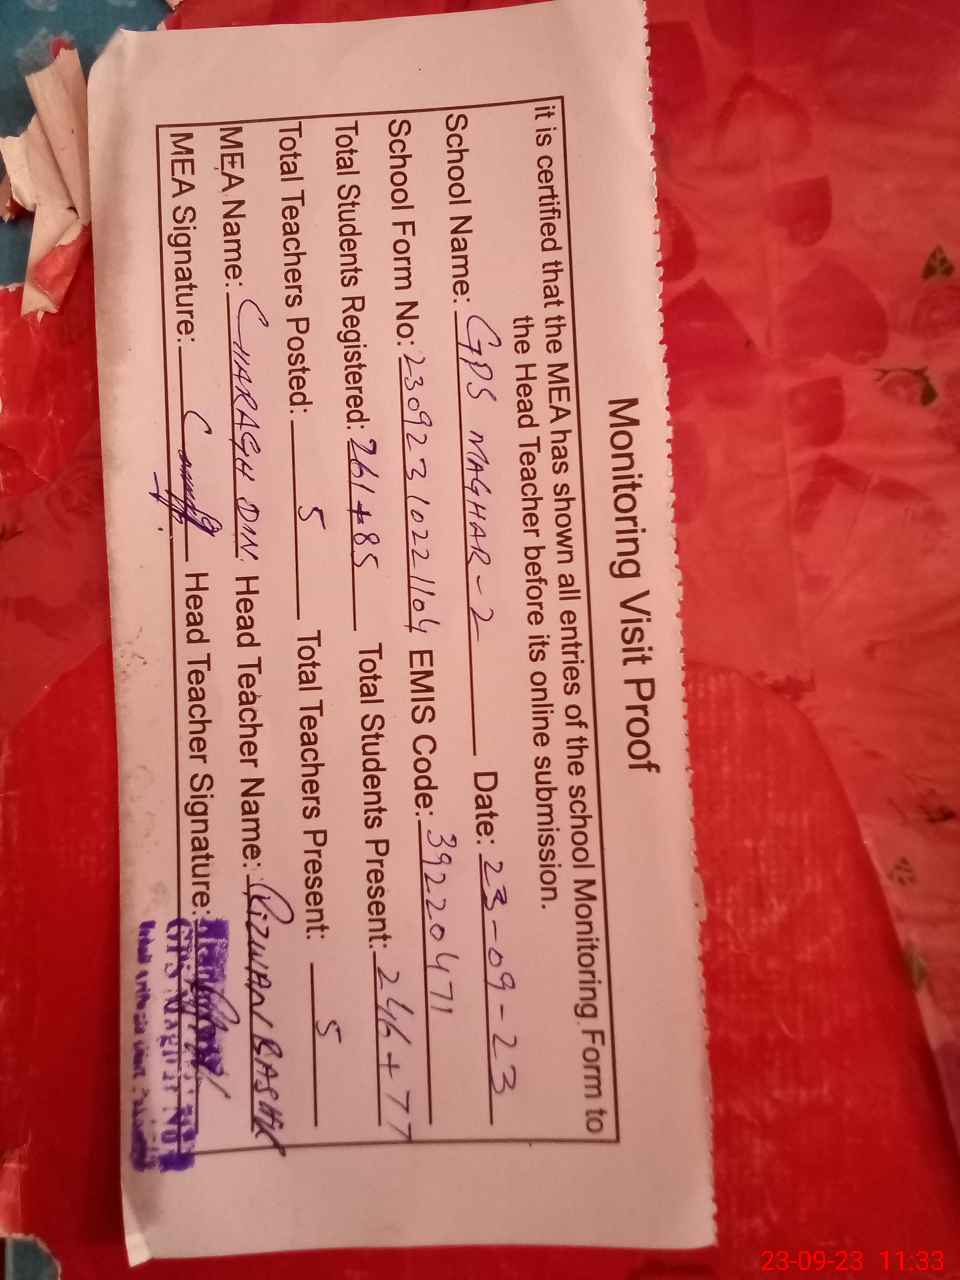 Monitoring Visit Proof
it is certified that the MEA has shown all entries of the school Monitoring Form to
the Head Teacher before its online submission.
School Name: GPS MAGHAR-2 Date: 23-09-23
School Form No: 23092310221104 EMIS Code: 39220471
Total Students Registered: 261+85 Total Students Present: 246+77
Total Teachers Posted: 5 Total Teachers Present: 5
MEA Name: CHARAGH DIN Head Teacher Name: RIZWAN BASHIR
MEA Signature: Head Teacher Signature:
GPS Maghar No
23-09-23 11:33